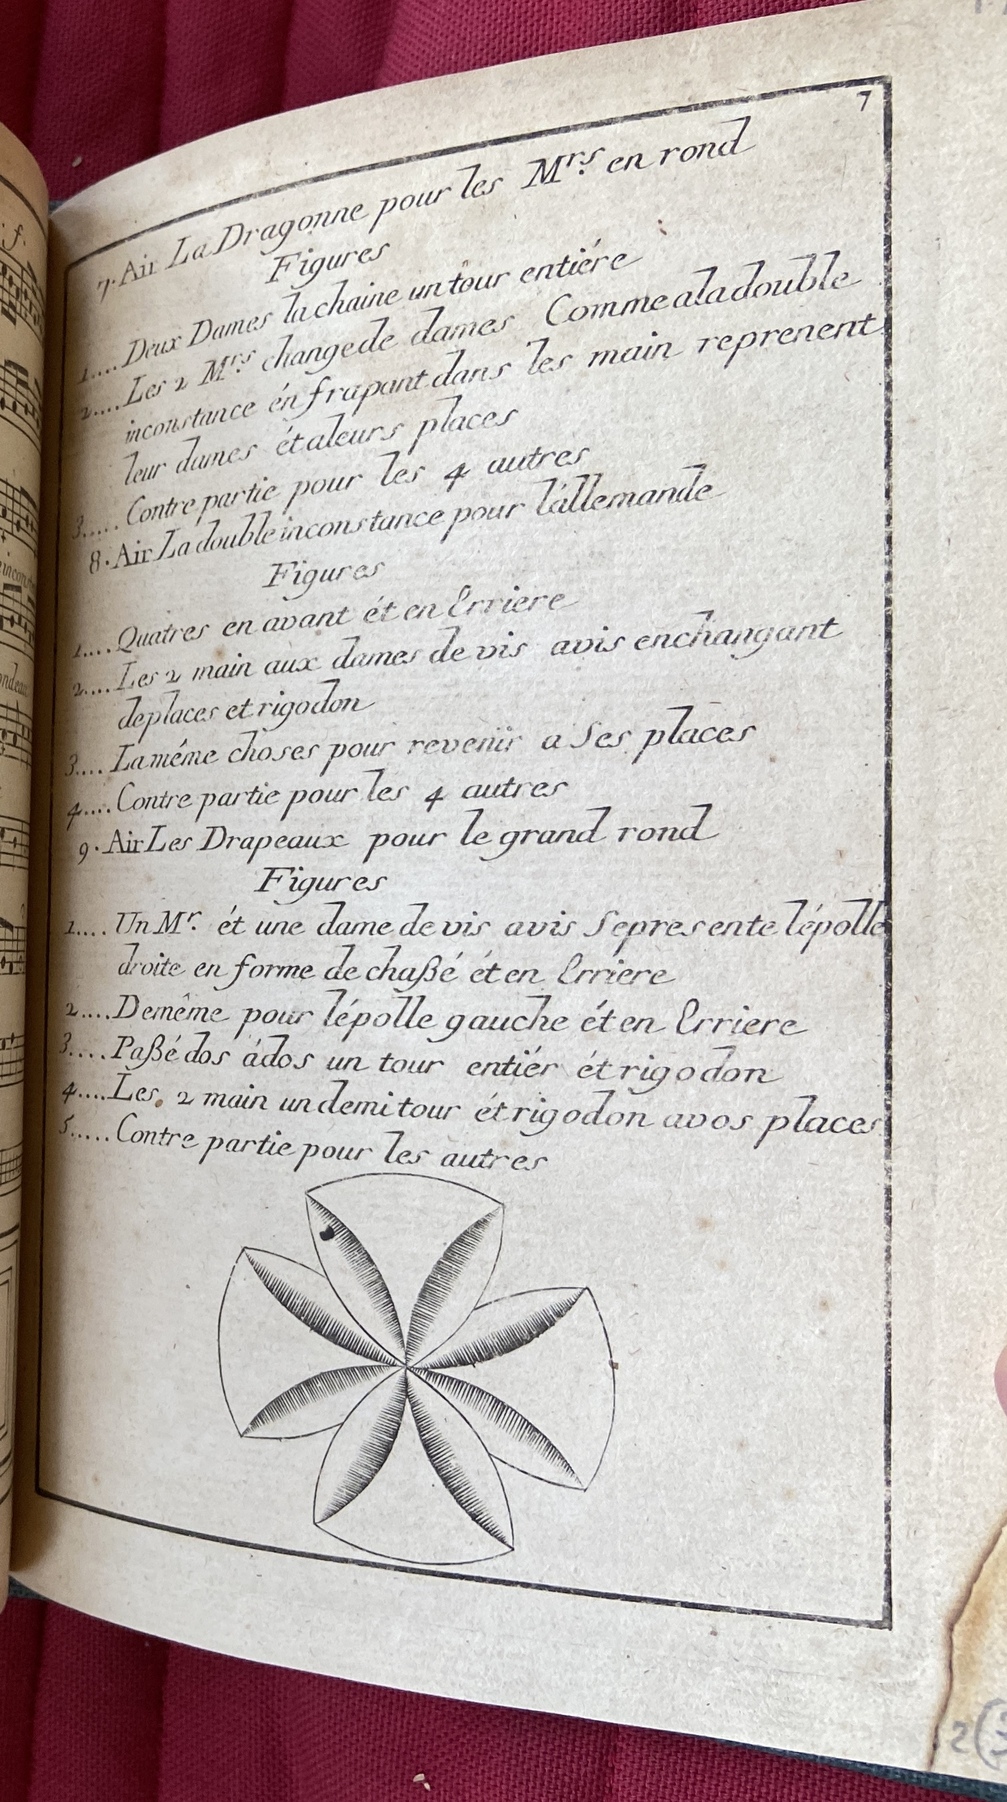 7
7. Air La Dragonne pour les Mrs. en rond
Figures
1.... Deux Dames la chaine un tour entiére
2.... Les 2 Mrs. change de dames Comme a la double
inconstance én frapant dans les main reprenent
leur dames ét a leurs places
3..... Contre partie pour les 4 autres
8. Air La double inconstance pour l'állemande
Figures
1.... Quatres en avant ét en Erriere
2.... Les 2 main aux dames de vis avis en changant
de places et rigodon
3.... La méme choses pour revenir a Ses places
4.... Contre partie pour les 4 autres
9. Air Les Drapeaux pour le grand rond
Figures
1.... Un Mr. ét une dame de vis avis Se presente lépolle
droite en forme de chaßé ét en Erriere
2.... De même pour lépolle gauche ét en Erriere
3.... Paßé dos ádos un tour entiér ét rigodon
4.... Les 2 main un demi tour ét rigodon a vos places
5..... Contre partie pour les autres
2